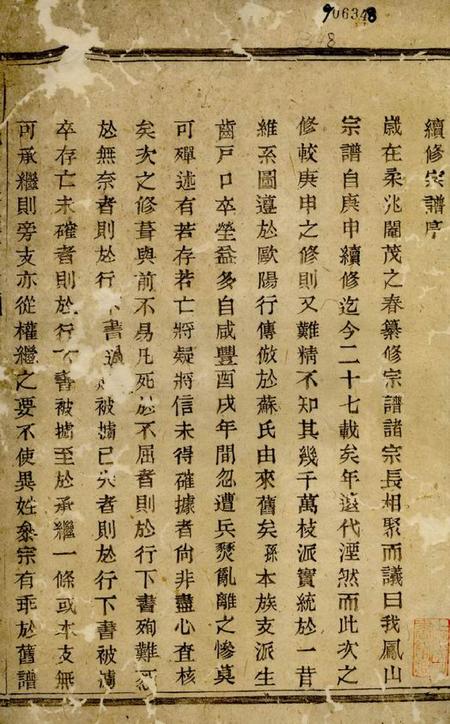 906348
續修宗譜序
歲在柔兆閹茂之春纂修宗譜諸宗長相聚而議曰我鳳山
宗譜自庚申續修迄今二十七載矣年遠代湮然而此次之
修較庚申之修則又難精不知其幾千萬枝派實統於一昔
維系圖遵於歐陽行傳倣於蘇氏由來舊矣孫本族支派生
齒戸口卒塋益多自咸豐酉戌年間忽遭兵燹亂離之慘莫
可殫述有若存若亡將疑將信未得確據者尙非盡心查核
矣次之修葺與前不易凡死於不屈者則於行下書殉難
於無奈者則於行下書 被擄已久者則於行下書被擄
卒存亡未確者則於行下書被擄至於承繼一條或本支無
可承繼則旁支亦從權繼之要不使異姓衆宗有乖於舊譜